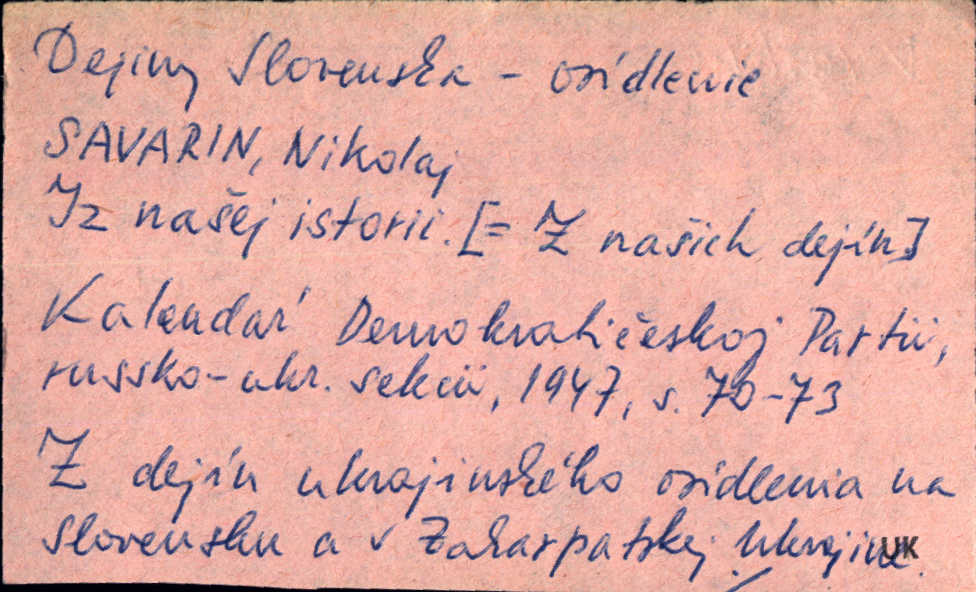 Dejiny Slovenska - osídlenie
SAVARIN, Nikolaj
Iz našej istorii. [= Z našich dejín]
Kalendar' Demokratičeskoj Partii,
russko-ukr. sekcii, 1947, s. 70-73
Z dejín ukrajinského osídlenia na
Slovensku a v Zakarpatskej Ukrajine.
UK